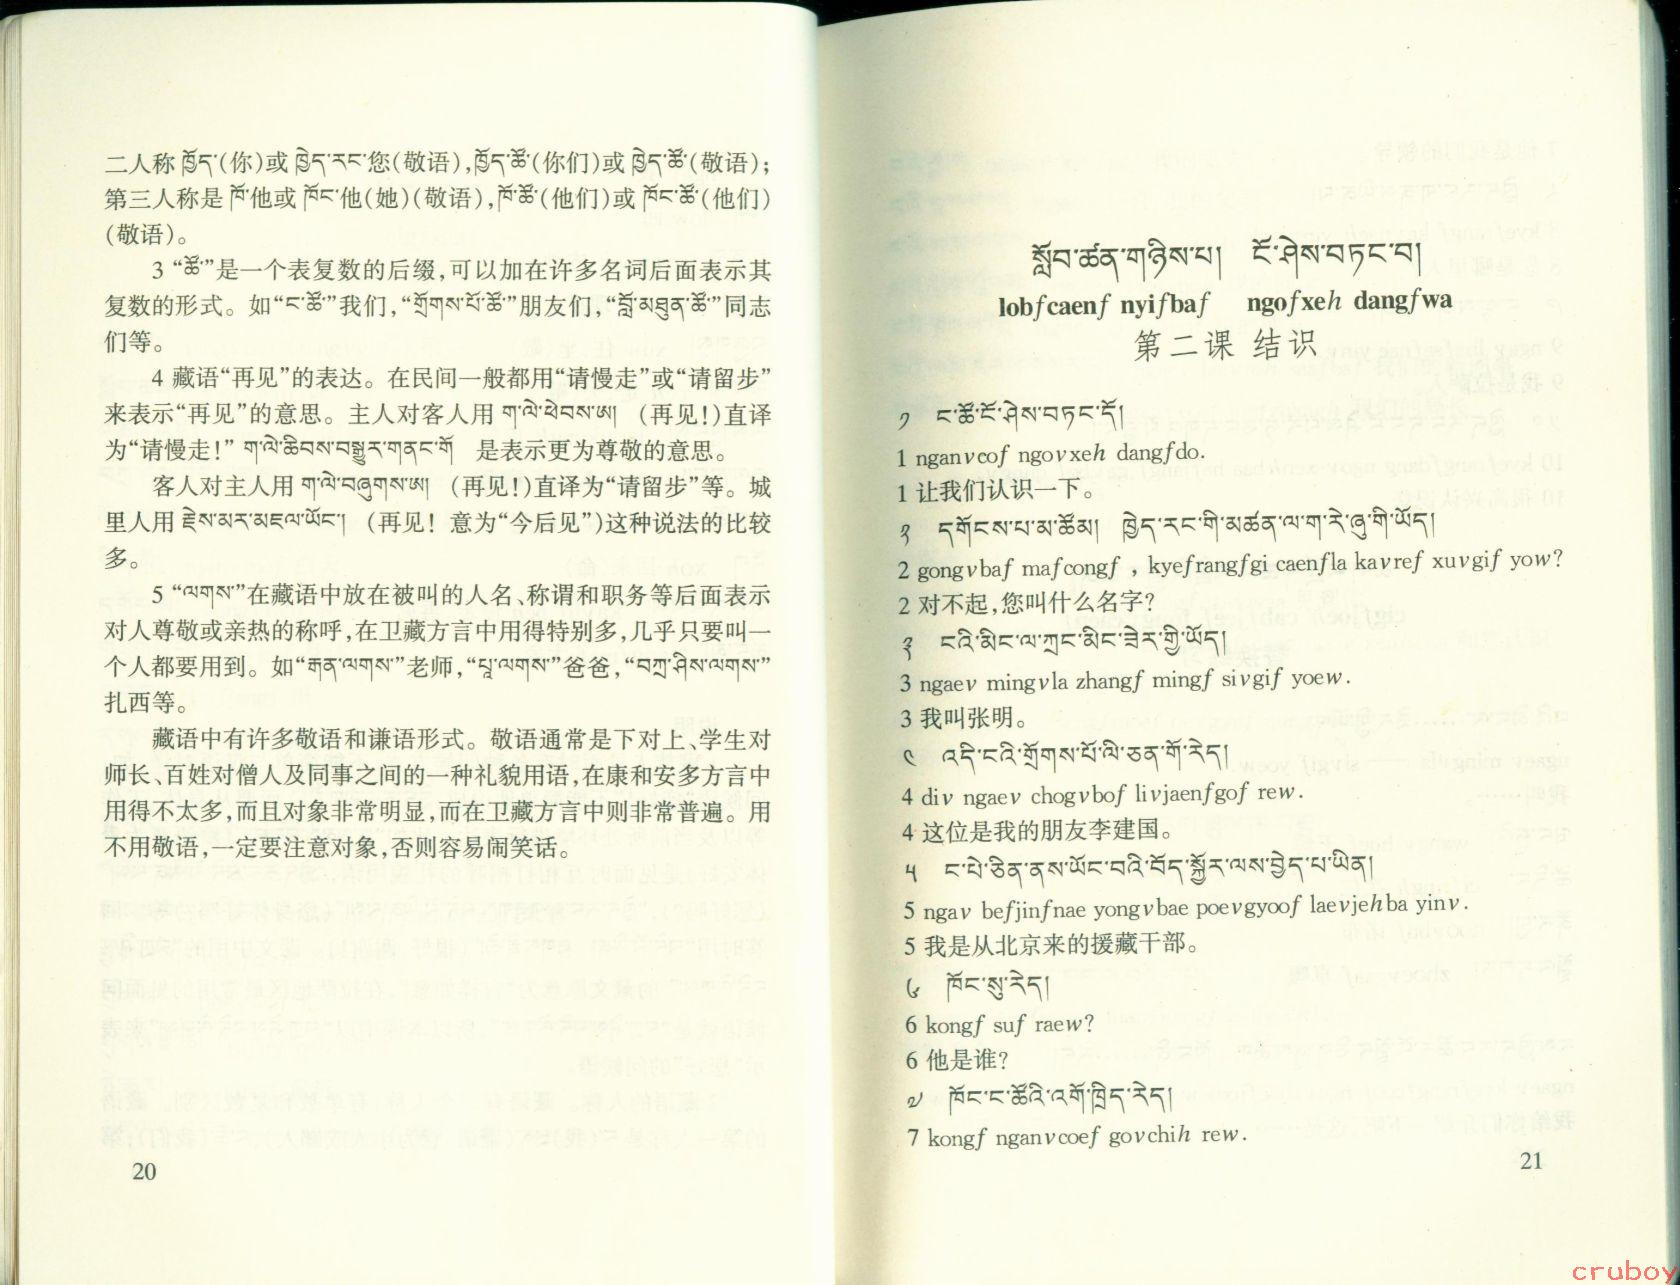 二人称ཁྱོད་(你)或ཁྱེད་རང་您(敬语),ཁྱོད་ཚོ་(你们)或ཁྱེད་ཚོ་(敬语);
第三人称是ཁོ་他或ཁོང་他(她)(敬语),ཁོ་ཚོ་(他们)或ཁོང་ཚོ་(他们)
(敬语)。
3 “ཚོ་”是一个表复数的后缀,可以加在许多名词后面表示其
复数的形式。如“ང་ཚོ་”我们,“གྲོགས་པོ་ཚོ་”朋友们,“བློ་མཐུན་ཚོ་”同志
们等。
4 藏语“再见”的表达。在民间一般都用“请慢走”或“请留步”
来表示“再见”的意思。主人对客人用 ག་ལེ་ཕེབས་ཨ། (再见!)直译
为“请慢走!” ག་ལེ་ཆིབས་བསྒྱུར་གནང་གོ 是表示更为尊敬的意思。
客人对主人用 ག་ལེ་བཞུགས་ཨ། (再见!)直译为“请留步”等。城
里人用 རྗེས་མར་མཇལ་ཡོང་། (再见! 意为“今后见”)这种说法的比较
多。
5 “ལགས་”在藏语中放在被叫的人名、称谓和职务等后面表示
对人尊敬或亲热的称呼,在卫藏方言中用得特别多,几乎只要叫一
个人都要用到。如“རྒན་ལགས་”老师,“པཱ་ལགས་”爸爸,“བཀྲ་ཤིས་ལགས་”
扎西等。
藏语中有许多敬语和谦语形式。敬语通常是下对上、学生对
师长、百姓对僧人及同事之间的一种礼貌用语,在康和安多方言中
用得不太多,而且对象非常明显,而在卫藏方言中则非常普遍。用
不用敬语,一定要注意对象,否则容易闹笑话。
20
སློབ་ཚན་གཉིས་པ། ངོ་ཤེས་བཏང་བ།
lobfcaenf nyifbaf ngofxeh dangfwa
第二课 结识
༡ ང་ཚོ་ངོ་ཤེས་བཏང་དོ།
1 nganvcof ngovxeh dangfdo.
1 让我们认识一下。
༢ དགོངས་པ་མ་ཚོམ། ཁྱེད་རང་གི་མཚན་ལ་ག་རེ་ཞུ་གི་ཡོད།
2 gongvbaf mafcongf , kyefrangfgi caenfla kavref xuvgif yow?
2 对不起,您叫什么名字?
༣ ངའི་མིང་ལ་ཀྲང་མིང་ཟེར་གྱི་ཡོད།
3 ngaev mingvla zhangf mingf sivgif yoew.
3 我叫张明。
༤ འདི་ངའི་གྲོགས་པོ་ལི་ཅན་གོ་རེད།
4 div ngaev chogvbof livjaenfgof rew.
4 这位是我的朋友李建国。
༥ ང་པེ་ཅིན་ནས་ཡོང་བའི་བོད་སྐྱོར་ལས་བྱེད་པ་ཡིན།
5 ngav befjinfnae yongvbae poevgyoof laevjehba yinv.
5 我是从北京来的援藏干部。
༦ ཁོང་སུ་རེད།
6 kongf suf raew?
6 他是谁?
༧ ཁོང་ང་ཚོའི་འགོ་ཁྲིད་རེད།
7 kongf nganvcoef govchih rew.
21
cruboy